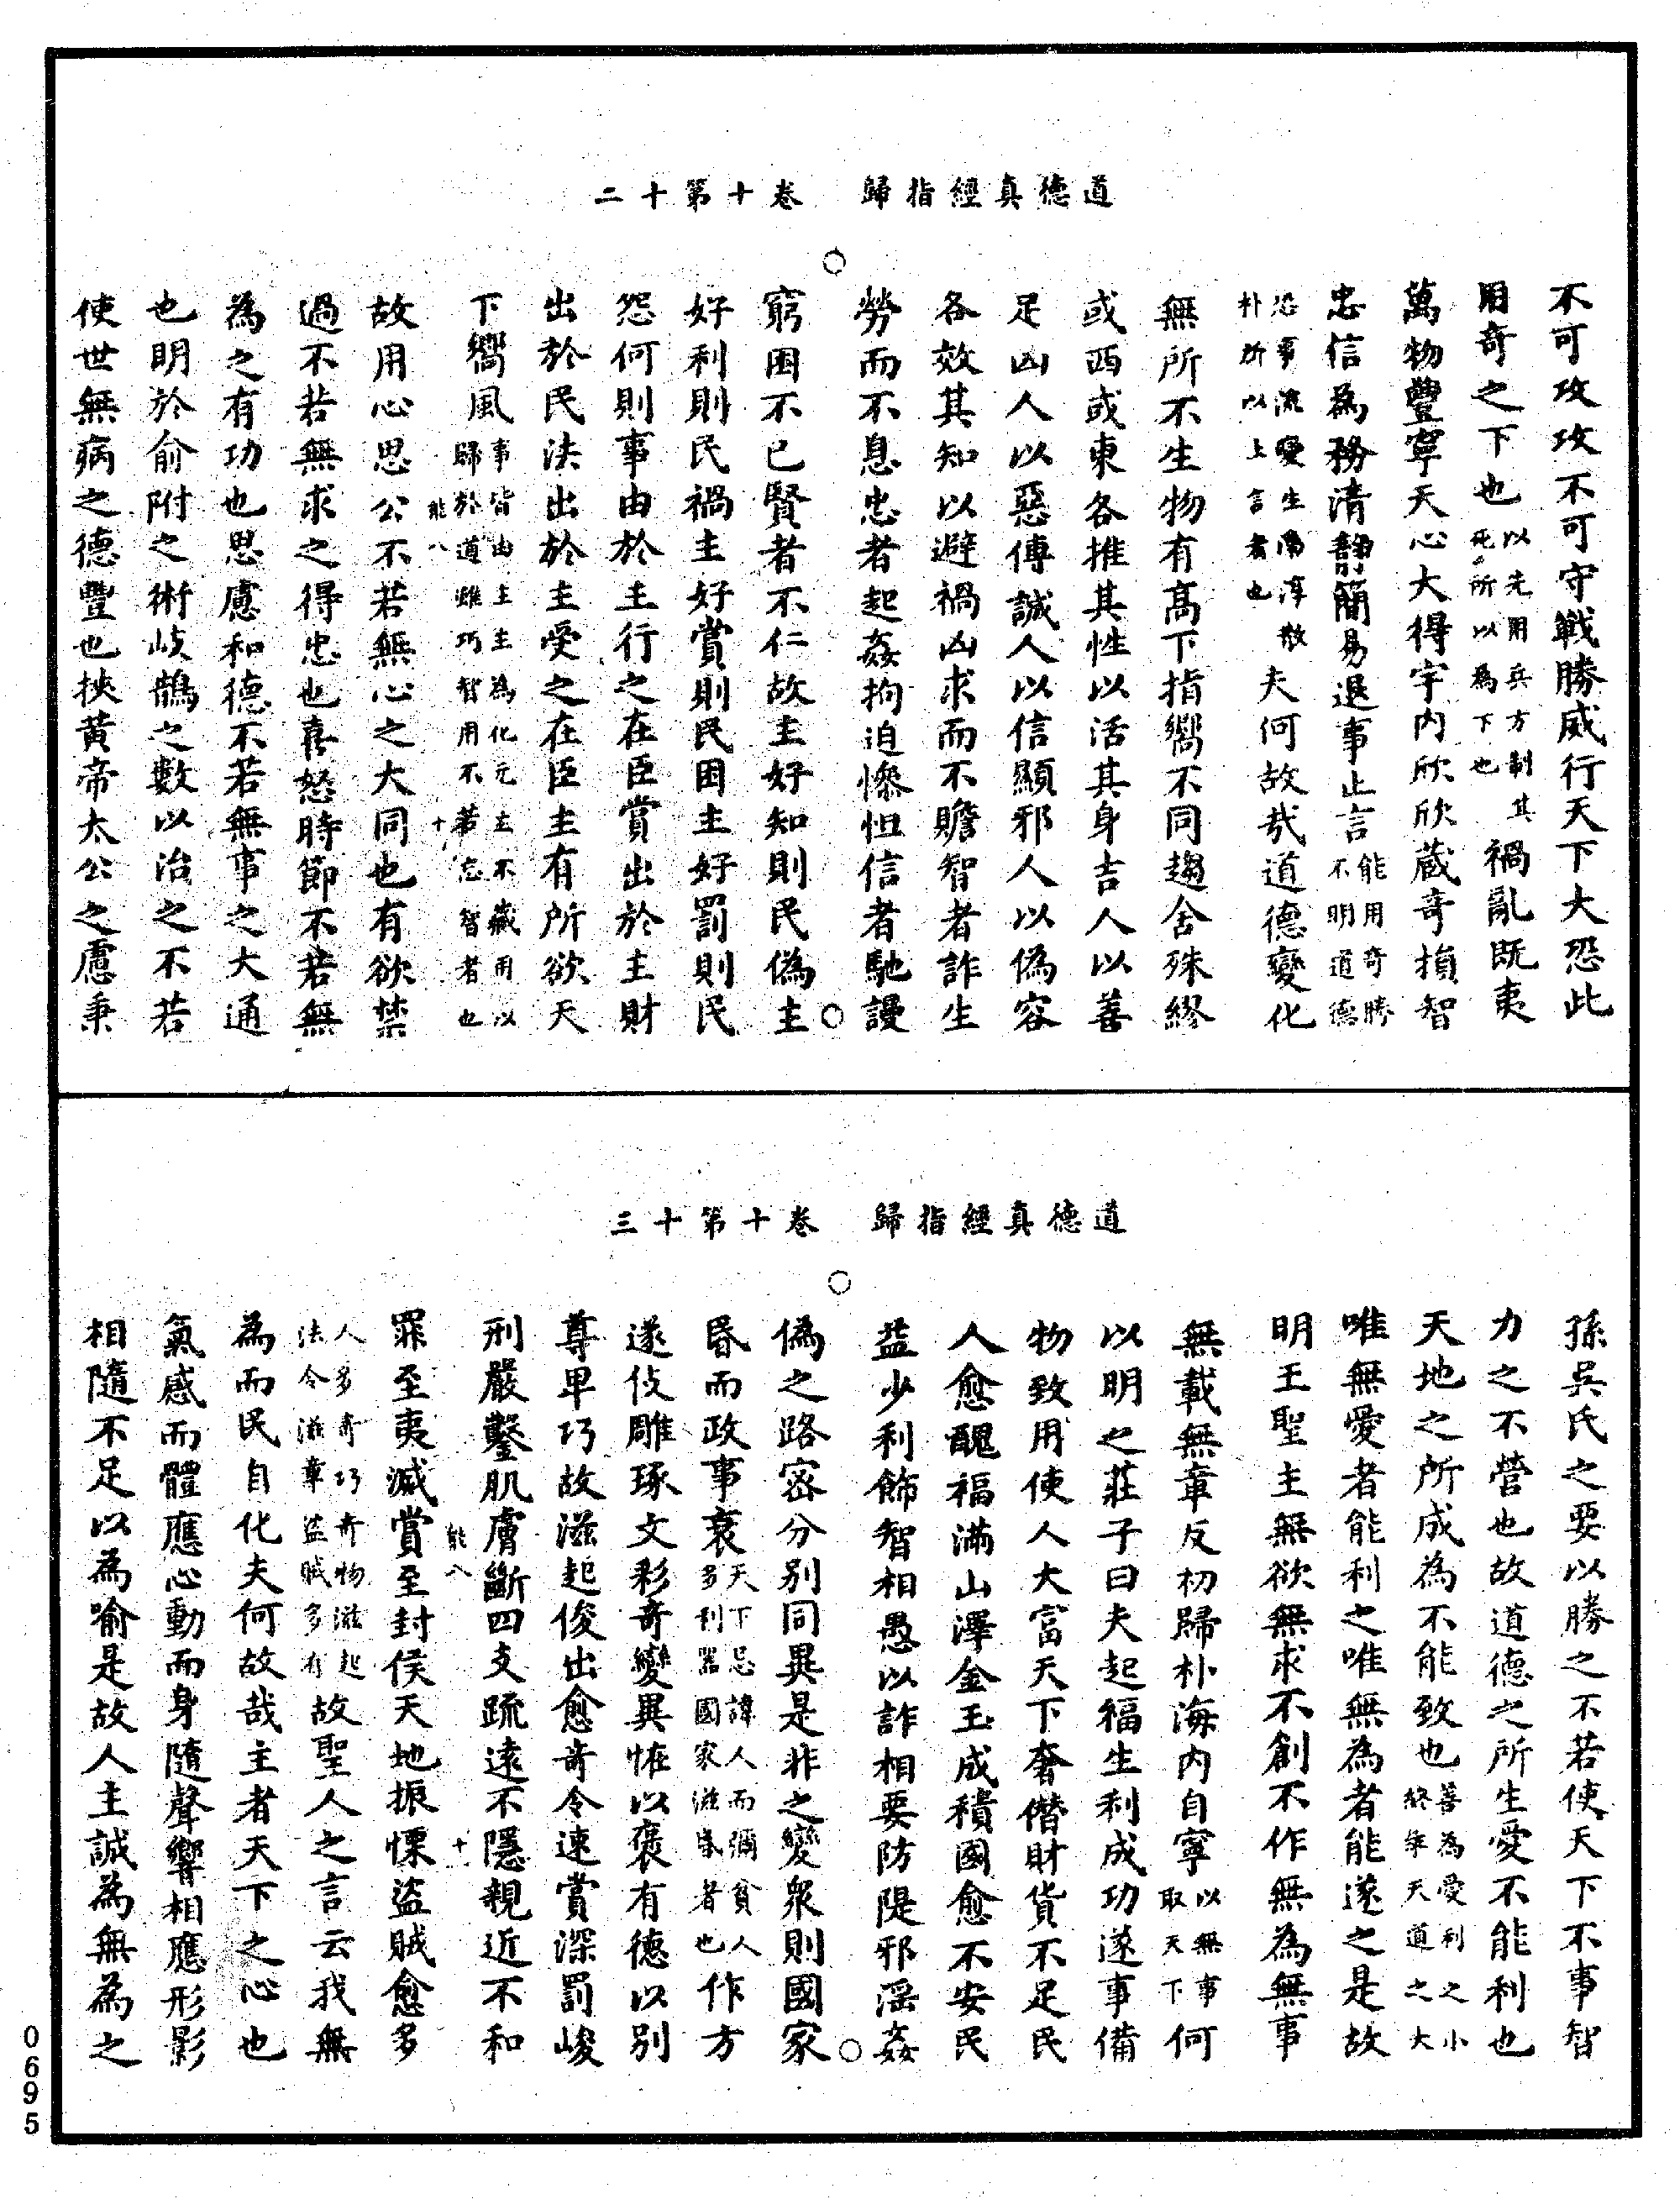 道德真經指歸 卷十第十二
不可攻攻不可守戰勝威行天下大恐此
用奇之下也以先用兵方制其死所以為下也禍亂既夷
萬物豐寧天心大得宇内欣欣藏奇損智
忠信為務清静簡易退事止言能用奇勝不明道德
㳂事流變生
朴所以上言者也夫何故哉道德變化
無所不生物有高下指嚮不同趨舍殊繆
或西或東各推其性以活其身吉人以善
足凶人以惡傳誠人以信顯邪人以偽容
各效其知以避禍凶求而不贍智者詐生
勞而不息忠者起姦拘迫慘怛信者馳謾
窮困不已賢者不仁故主好知則民偽主
好利則民禍主好賞則民困主好罰則民
怨何則事由於主行之在臣賞出於主財
出於民法出於主受之在臣主有所欲天
下嚮風事皆由主主為化元主不藏用以歸於道雖巧智用不若忘智者也
能八 十
故用心思公不若無心之大同也有欲禁
過不若無求之得忠也喜怒時節不若無
為之有功也思慮和德不若無事之大通
也明於俞附之術岐鵲之數以治之不若
使世無病之德豐也挾黃帝太公之慮秉
道德真經指歸 卷十第十三
孫吳氏之要以勝之不若使天下不事智
力之不營也故道德之所生愛不能利也
天地之所成為不能致也善為愛利之小終年天道之大
唯無愛者能利之唯無為者能遂之是故
明王聖主無欲無求不創不作無為無事
無載無章反初歸朴海内自寧以無事取天下何
以明之莊子曰夫起福生利成功遂事備
物致用使人大富天下奢僭財貨不足民
人愈醜福滿山澤金玉成積國愈不安民
益少利飾智相愚以詐相要防隄邪淫姦
偽之路密分別同異是非之變衆則國家
昏而政事衰天下忌諱人而彌貧人多利器國家滋昏者也作方
遂伎雕琢文彩奇變異恠以褒有德以別
尊卑巧故滋起俊出愈奇令速賞深罰峻
刑嚴鑿肌膚斷四支疏遠不隱親近不和
能八 十
罪至夷滅賞至封侯天地振慄盜賊愈多
人多奇巧奇物滋起法令滋章盜賊多有故聖人之言云我無
為而民自化夫何故哉主者天下之心也
氣感而體應心動而身隨聲響相應形影
相隨不足以為喻是故人主誠為無為之
0695